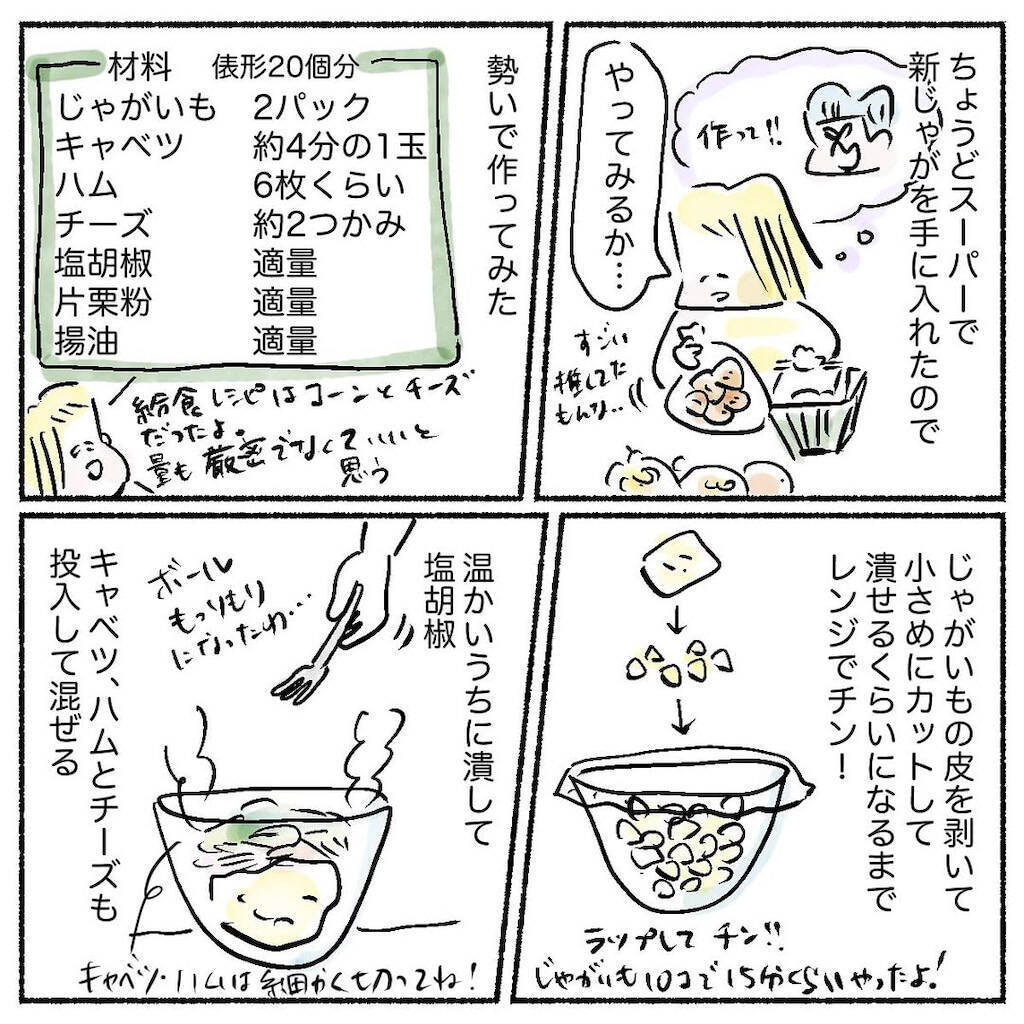 ちょうどスーパーで
新じゃがを手に入れたので
作って!!
やってみるか…
すごい
推してた
もんな..
勢いで作ってみた
材料 俵形20個分
じゃがいも 2パック
キャベツ 約4分の1玉
ハム 6枚くらい
チーズ 約2つかみ
塩胡椒 適量
片栗粉 適量
揚油 適量
給食レシピはコーンとチーズ
だったよ。
量も厳密でなくていいと
思う
じゃがいもの皮を剥いて
小さめにカットして
潰せるくらいになるまで
レンジでチン!
ラップして チン!!
じゃがいも10コで15分くらいやったよ!
温かいうちに潰して
塩胡椒
ボール
もりもり
になったわ…
キャベツ、ハムとチーズも
投入して混ぜる
キャベツ・ハムは細かく切ってね!